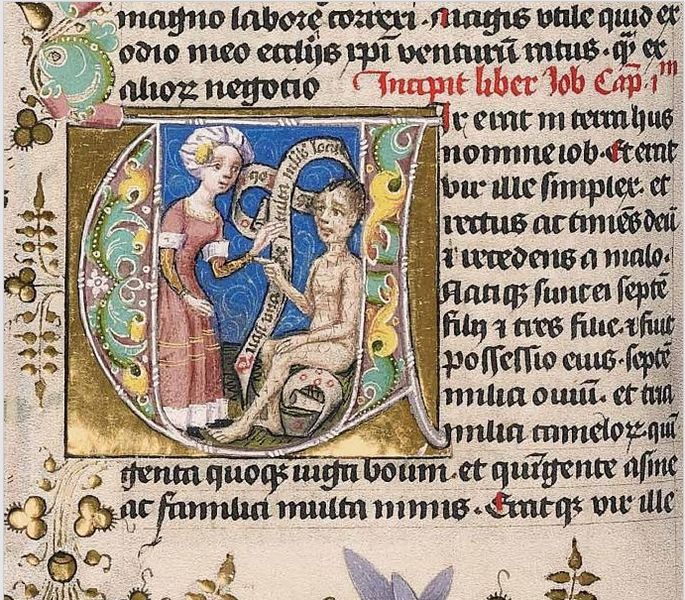 magno labore correxi . Magis vtile quid ex
odio meo ecclijs xpi venturū ratus . qz ex
alioꝝ negocio Incipit liber Job Cap . 1m
Vir erat in terra hus
nomine iob . Et erat
vir ille simplex . et
rectus ac timēs deū
⁊ recedens a malo .
Natiqz sunt ei septē
filij ⁊ tres filie . ⁊ fuit
possessio eius . septē
milia ouiū . et tria
milia cameloꝝ quī
genta quoqz iuga boum . et quīgente asine
ac familia multa nimis . Eratqz vir ille